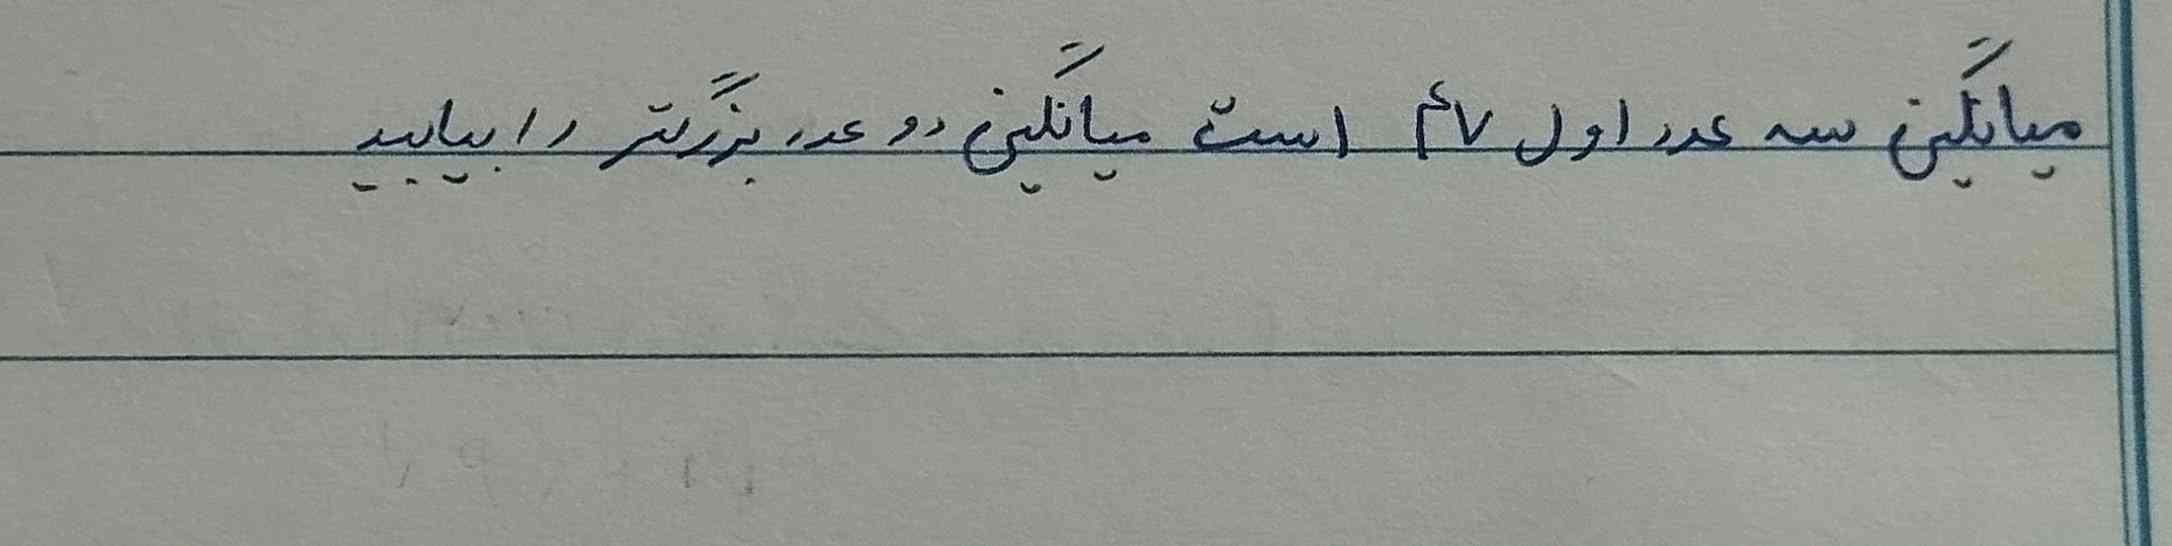 میانگین سه عدد اول ۴۷ است میانگین دو عدد بزرگتر را بیابید